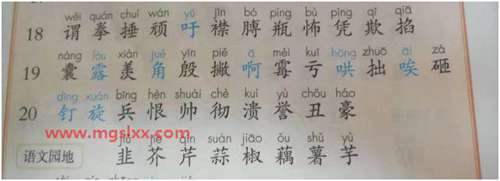 wèi quán chuí wán yū jīn bó píng bù píng qī qiā
18 谓 拳 捶 顽 吁 襟 膊 瓶 怖 凭 欺 掐
náng lòu xiàn jué yīn piē ā méi kuī hōng zhuō āi zá
19 囊 露 羡 角 殷 撇 啊 霉 亏 哄 拙 唉 砸
dīng xuán bīng hèn shuài chè kuì yù chǒu háo
20 钉 旋 兵 恨 帅 彻 溃 誉 丑 豪
www.mgslxx.com
jiǔ jiè qín suàn jiāo ǒu shǔ yù
语文园地 韭 芥 芹 蒜 椒 藕 薯 芋